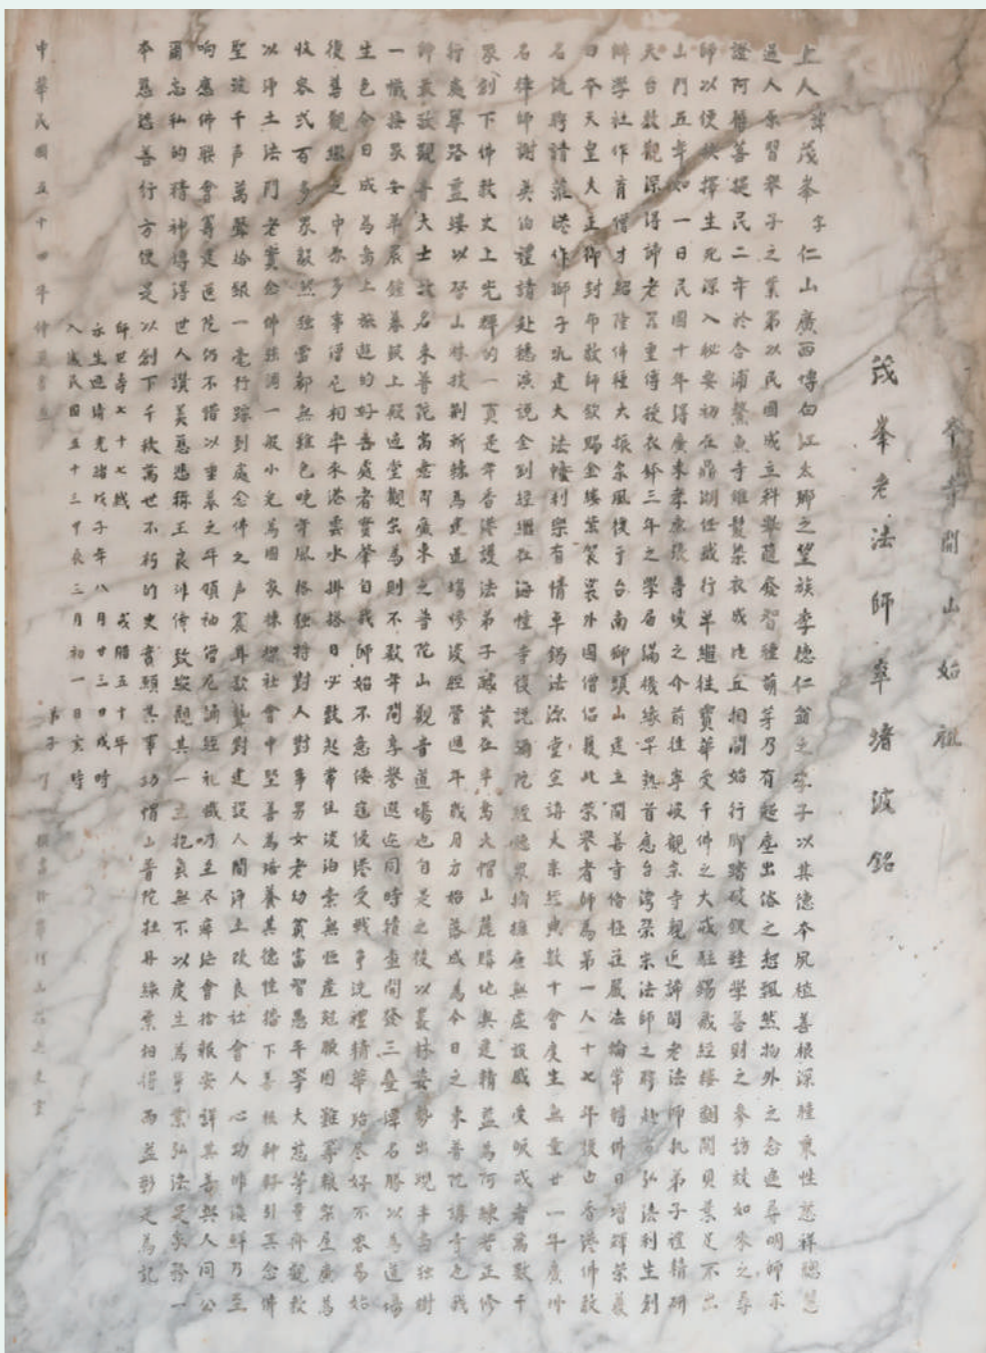 本寺開山始祖
茂峯老法師窣堵波銘
上人諱茂峯字仁山廣西博白江太鄉之望族李德仁翁之季子以其德本夙植善根深種秉性慈祥聰慧
過人原習舉子之業第以民國成立科舉隨廢智種萌芽乃有超塵出俗之想飄然物外之念迨尋明師求
證阿耨菩提民二年於合浦鰲魚寺雉髮染衣成比丘相開始行脚踏破鐵鞋學善財之參訪效如來之尋
師以便抉擇生死深入秘要初在鼎湖任戒行半繼往寶華受千佛之大戒駐錫藏經樓翻閱貝葉足不出
山門五年如一日民國十年得廣東李東張壽波之介前往寧波觀宗寺親近諦閑老法師執弟子禮精研
天台教觀深得諦老器重傳授衣鉢三年之學居滿後緣早熟首應台灣榮宗法師之聘赴台弘法利生創
辦學社作育僧才紹隆佛種大振宗風後于台南聊頭山建立開善寺備極莊嚴法輪常轉佛日增輝榮獲
日本天皇大正御封布教師欽賜金縷紫袈裟外國僧侶獲此榮譽者師為第一人十七年後由香港佛教
名流聘請蒞港作獅子吼建大法幢利樂有情卓錫法源堂宣講大乘經典數十會度生無量廿一年廣州
名律師謝英伯禮請赴穗演說金剛經繼在海幢寺復說彌陀經聽眾擁擠座無虛設咸受皈戒者萬數千
眾創下佛教史上光輝的一頁是年香港護法弟子誠資在半島大帽山麓勝地興建精藍為阿練若正修
行處篳路藍縷以啓山林披荊斬棘為建道場慘淡經營週年歲月方始落成為今日之東普陀講寺也我
師最敬觀音大士故名東普陀寓意即廣東之普陀山觀音道場也自是之後以叢林姿勢出現半島獨樹
一幟接眾安單晨鐘暮鼓上殿過堂觀宗為則不數年間享譽遐迩同時積查開發三叠潭名勝以為道場
生色今日成為島上旅遊的好去處者實肇自我師始不意倭寇侵港受戰爭洗禮精華殆盡好不容易始
復舊觀繼之中原多事僧尼相率來港雲水掛搭日必數起常住淡泊素無恒產克艱困難籌糧架屋廣為
收容弍百多眾毅然獨當都無難色晚年風格獨特對人對事男女老幼貧富智愚平等大慈等量齊觀教
以淨土法門老實念佛強調一般小兒為國家棟樑社會中堅善為培養其德性播下善根種籽引其念佛
聖號千声萬聲給銀一毫行踪到處念佛之声震耳歡騰對建設人間淨土改良社會人心功昨淺鮮乃至
响應佛聯會籌建返院仍不惜以重暮之年領袖僧尼誦經礼懺乃至尽瘁法會捨報安詳其善與人同公
爾忘私的精神博得世人讚美慈悲稱王良非偉致縱觀其一生抱負無不以度生為事業弘法是家務一
本慈悲善行方便是以創下千秋萬世不朽的史書頤其事功帽山普陀牡丹綠葉相得而益彰足為記
師世壽七十七歲 戒臘五十年
示生遜清光緒戊子年八月廿三日戌時
入滅民國五十三甲辰三月初一日亥時
中華民國五十四年仲夏吉立